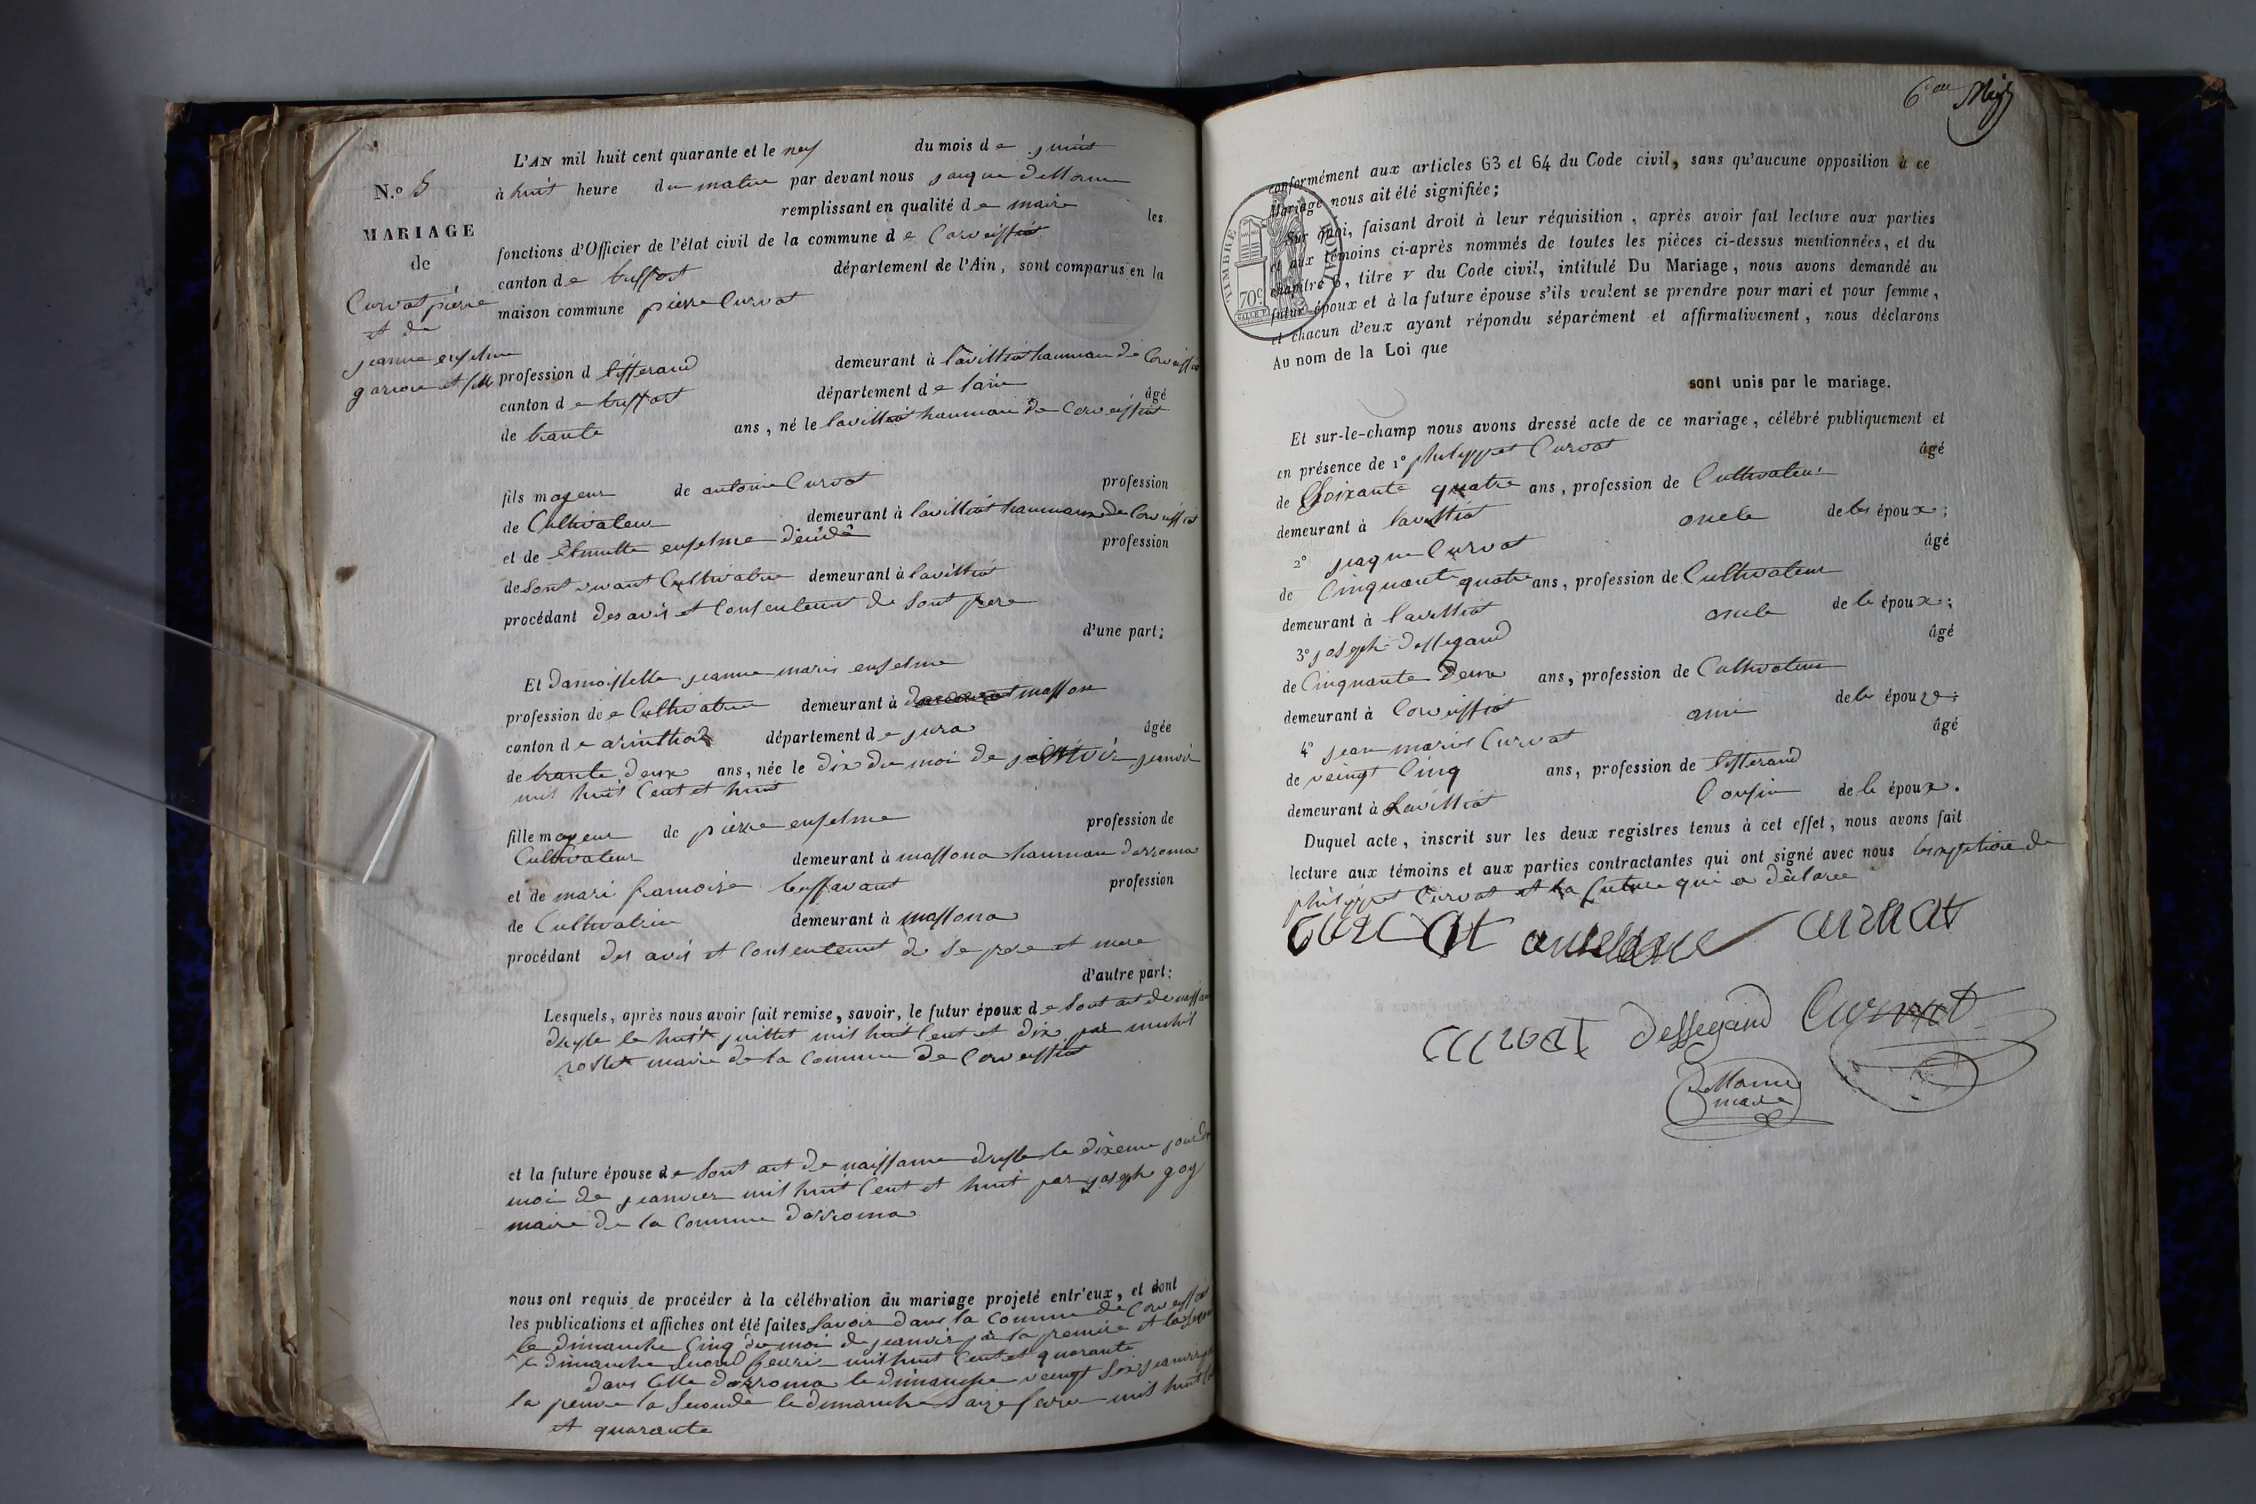 N.o 5
MARIAGE
de
Curvat pierre
et de
jeanne enselme
garson et fille
L'AN mil huit cent quarante et le neuf du mois de juin
à huit heure du matin par devant nous jacque
remplissant en qualité de maire les
fonctions d'Officier de l'état civil de la commune de Corveissiat
canton de treffort département de l'Ain, sont comparus en la
maison commune pierre Curvat
profession d tisserand demeurant à lavilliat hameau de Corveissiat
canton de treffort département de lain âgé
de trante ans, né le lavilliat hameau de Corveissiat
fils mageur de antoine Curvat profession
de Cultivateur demeurant à lavilliat hameau de Corveissiat
et de enselme décédé profession
de sont vivant Cultivatrice demeurant à lavilliat
procédant des avis et consentement de sont pere
d'une part;
Et damoiselle jeanne marie enselme
profession de Cultivatrice demeurant à massona
canton de arinthod département de jura âgée
de trante deux ans, née le dix du moi de janvié
mil huit Cent et huit
fille mageur de pierre enselme profession de
Cultivateur demeurant à massona hameau darroma
et de mari franoise bessavant profession
de Cultivatrice demeurant à massona
procédant des avis et Consentement de se pere et mere
d'autre part:
Lesquels, après nous avoir fait remise, savoir, le futur époux de sont act de
le huit juillet mil huit Cent et dix par
rosset maire de la Commune de Corveissiat
et la future épouse de sont act de naissance le dixeme jour du
moi de jeanvier mil huit Cent et huit par joseph goy
maire de la Commune darroma
nous ont requis de procéder à la célébration du mariage projeté entr'eux, et dont
les publications et affiches ont été faites savoir dans la Commune de Corveissiat
le dimanche Cinq du moi de jeanvié la premiere et la
le dimanche second mil huit Cent et quarante
dans Celle darroma le dimanche veingt six jeanvié
la la seconde le dimanche saize mil huit
et quarante
conformément aux articles 63 et 64 du Code civil, sans qu'aucune opposition à ce
Mariage nous ait été signifiée;
TIMBRE ROYAL
70c
Sur quoi, faisant droit à leur réquisition, après avoir fait lecture aux parties
et aux témoins ci-après nommés de toutes les pièces ci-dessus mentionnées, et du
chapitre 6, titre v du Code civil, intitulé Du Mariage, nous avons demandé au
futur époux et à la future épouse s'ils veulent se prendre pour mari et pour femme,
et chacun d'eux ayant répondu séparément et affirmativement, nous déclarons
Au nom de la Loi que
sont unis par le mariage.
Et sur-le-champ nous avons dressé acte de ce mariage, célébré publiquement et
en présence de 1o philippet Curvat âgé
de Soixante quatre ans, profession de Cultivateur
demeurant à lavilliat oncle de les époux;
2o jaque Curvat âgé
de Cinquante quatre ans, profession de Cultivateur
demeurant à lavilliat oncle de le époux;
3o joseph dessegand âgé
de Cinquante deux ans, profession de Cultivateur
demeurant à Corveissiat ami de le épouze;
4o jean marie Curvat âgé
de veingt Cinq ans, profession de tisserand
demeurant à Lavilliat Cousin de le époux.
Duquel acte, inscrit sur les deux registres tenus à cet effet, nous avons fait
lecture aux témoins et aux parties contractantes qui ont signé avec nous de
philippet Curvat et la future qui a déclaree
curvat curvat
curvat dessegand Curvat
maire